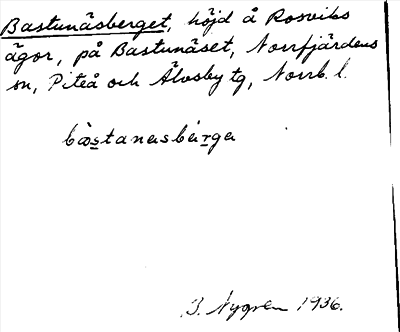 Bastunäsberget, höjd å Rosviks
ägor, på Bastunäset, Norrfjärdens
sn, Piteå och Älvsby tg, Norrb. l.
bastanasbärga
J. Nygren 1936.